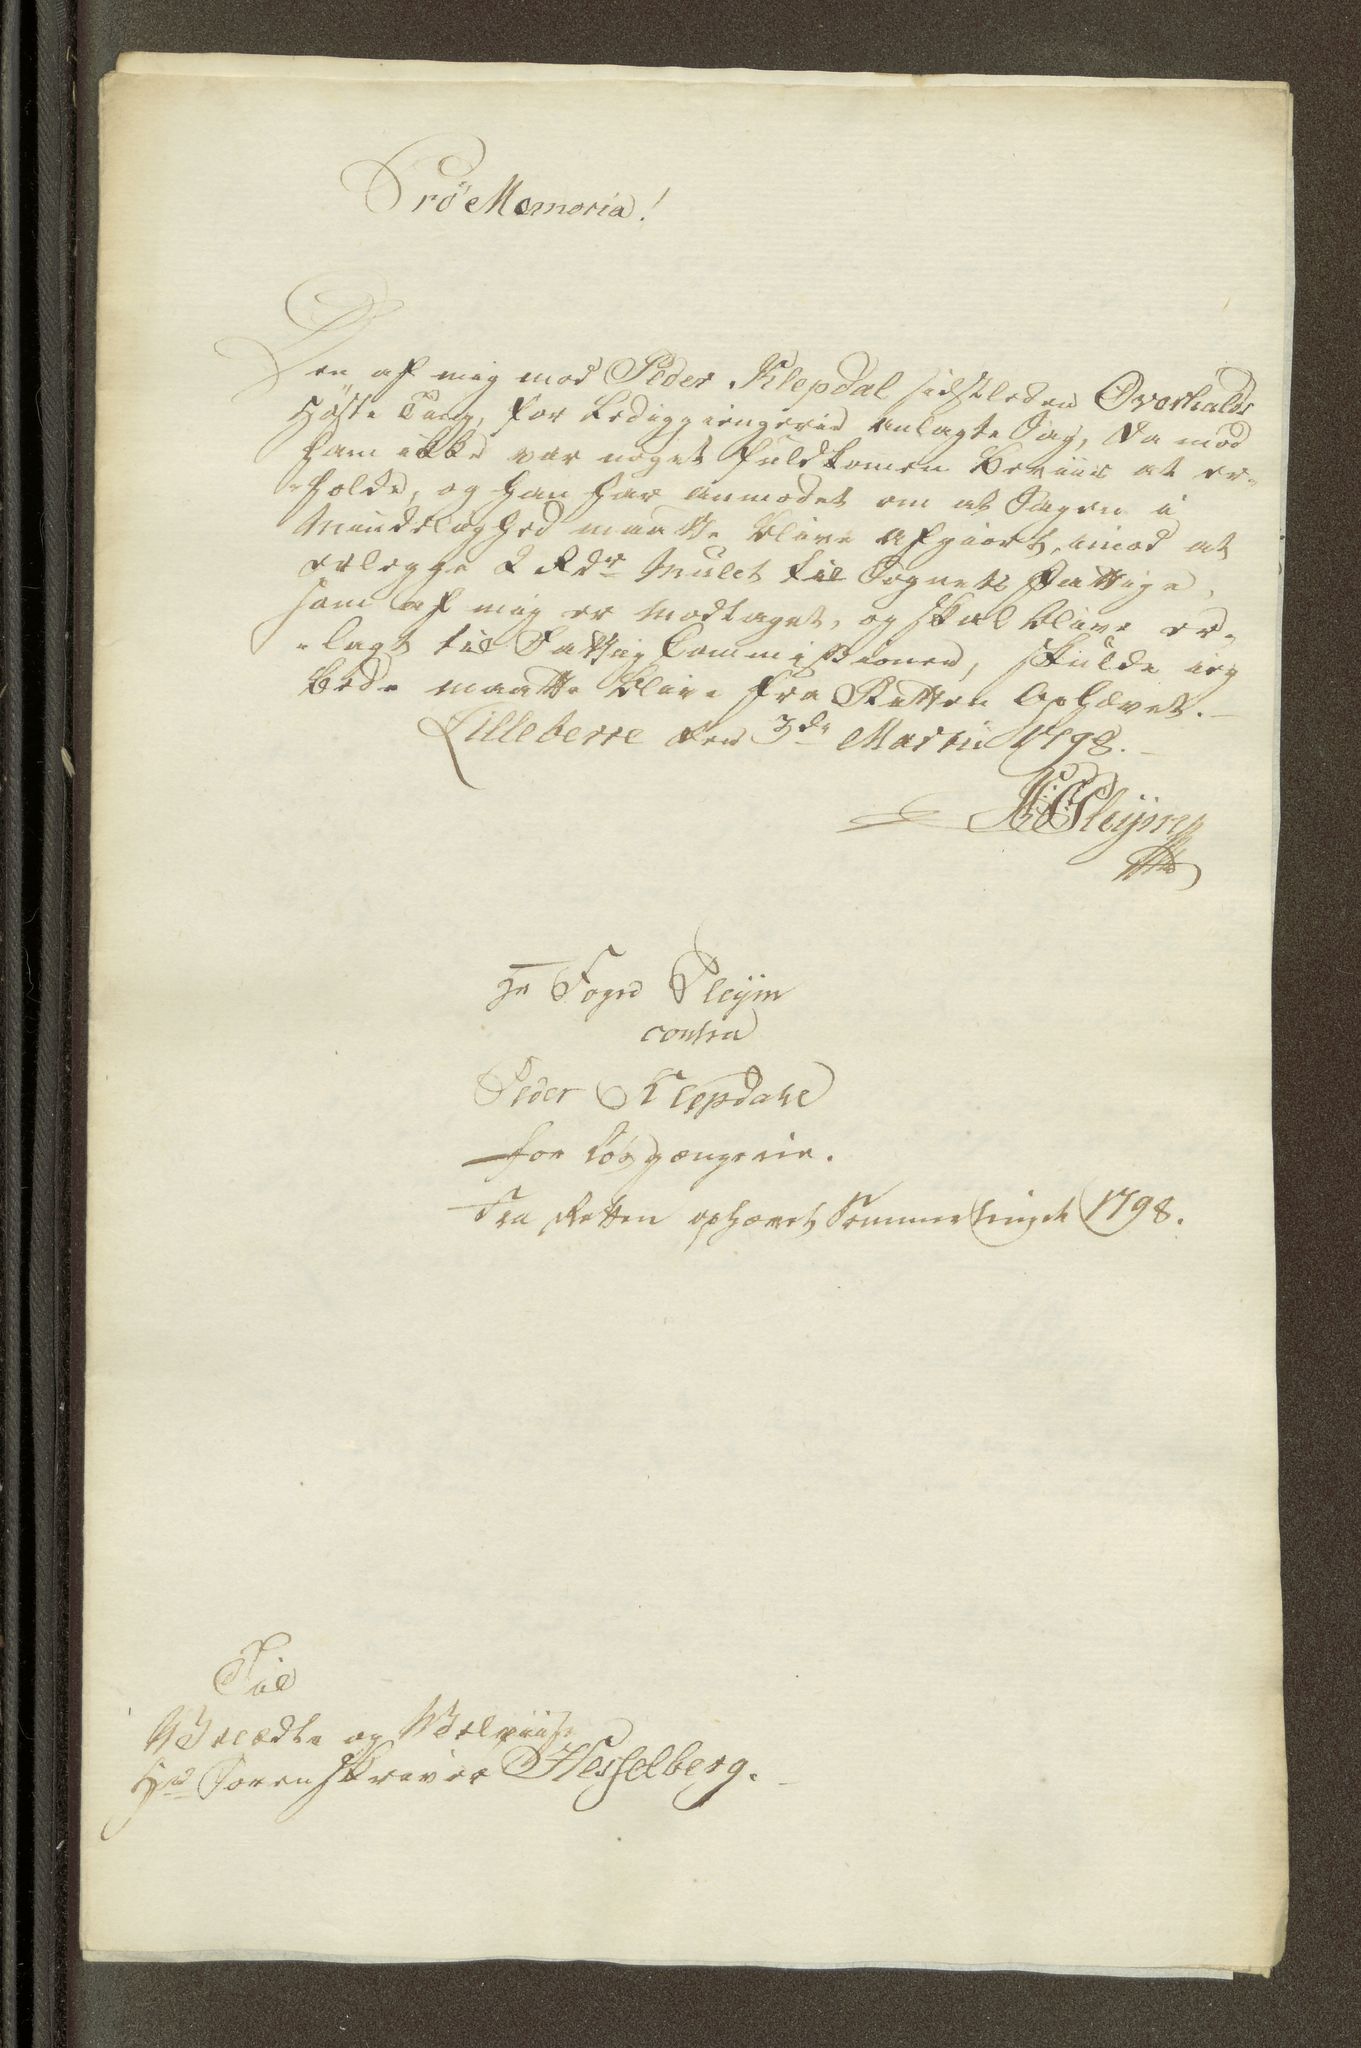 Pro Memoria!
Den af mig mod Peder Klepdal sidstleden Overhalds
Høste Ting, for Lediggiengerie anlagte Sag, da mod
ham ikke var noget fuldkomen Beviis at er-
-holde, og han har anmodet om at Sagen i
Mindelighed maatte blive afgiort, imod at
erlegge 2 Rdr Mulct til Sognets Fattige,
som af mig er modtaget, og skal blive er-
-lagt til Fattig Commissionen, skulde ieg
bede maatte blive fra Retten Ophævet.-
Lilleberre den 3de Martii 1798.-
Pleÿm
Hr Foged Pleÿm
contra
Peder Klepdahl
for Løsgængerie.
Fra Retten ophævet Sommertinget 1798.
Til
Velædle og Velviise
Hr Sorenskriver Hesselberg.-